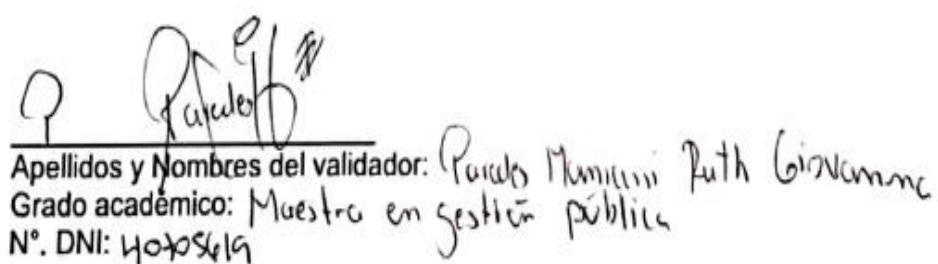 Apellidos y Nombres del validador: Paredes Mamani Ruth Giovanna
Grado académico: Maestra en gestión pública
N°. DNI: